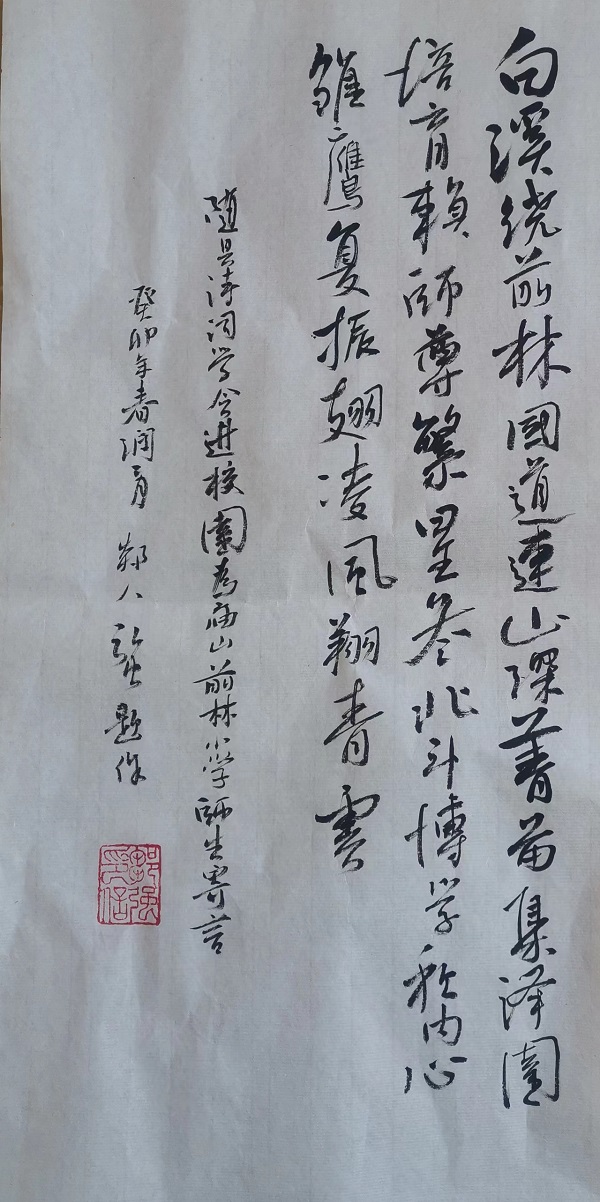 白溪绕前林国道连山深菁苗集泽园
培育赖师尊繁星参北斗博学秋内心
雏鹰复振翅凌风翔青雲
随县诗词学会进校園為庙山前林小学师生寄言
癸卯年春润月 鄢人 题作